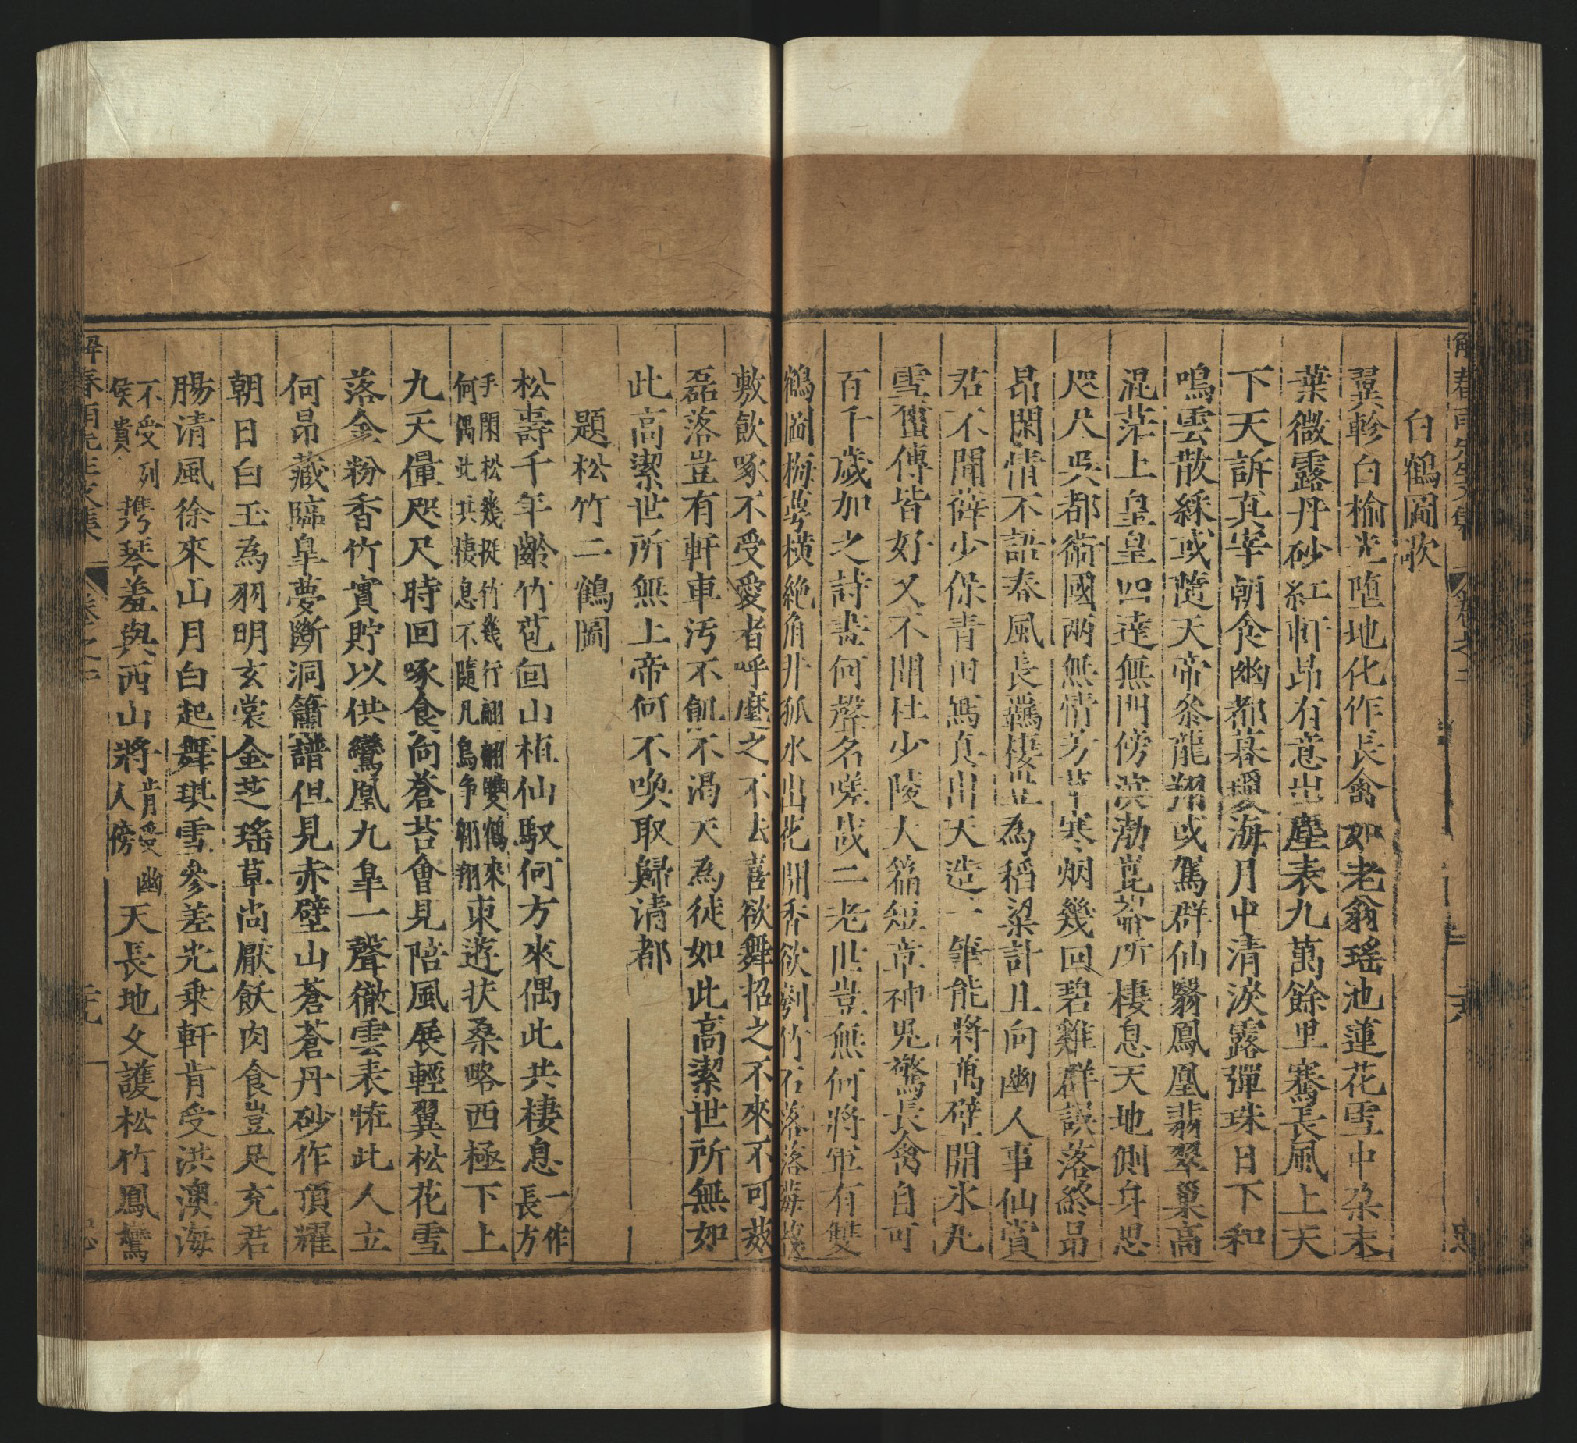 白鶴圖歌
翼軫白榆光墮地化作長禽如老翁瑤池蓮花雪中朶末
葉微露丹砂紅軒昂有意出塵表九萬餘里騫長風上天
下天訴真宰朝食幽都暮瓊海月中清淚露彈珠日下和
鳴雲散綵或隨天帝叅龍翔或駕群仙翳鳳凰翡翠巢高
混茫上皇皇四達無門傍溟渤崑崙所棲息天地側身思
咫尺吳都衛國兩無情芳草寒烟幾回碧雞群誤落終昂
昂閑情不語春風長鷁棲豈為稻粱計且向幽人事仙賞
君不聞薛少保青田寫真出天造一筆能將萬壁開氷丸
雪 傳皆好又不聞杜少陵大篇短章神鬼驚長禽自可
百千歲加之詩畫何聲名嗟哉二老世豈無何將軍有雙
鶴圖梅萼橫絶角井狐水出花開香欲刻竹石落落莓
敷飲啄不受愛者呼麾之不去喜欲舞招之不來不可
磊落豈有軒車汚不飢不渴天為徒如此高潔世所無如
此高潔世所無上帝何不喚取歸清都
題松竹二鶴圖
松壽千年齡竹苞 山植仙馭何方來偶此共棲息一作長方
手閑松幾挺竹幾行翩翩雙鶴來何偶此共棲息不隨凡鳥争翱翔東遊扶桑略西極下上
九天僅咫尺時回啄食向蒼苔會見陪風展輕翼松花雪
落金粉香竹實貯以供鸞凰九皐一聲徹雲表恠此人立
何昂藏歸皐夢斷洞簫譜但見赤壁山蒼蒼丹砂作頂耀
朝日白玉為羽明玄裳金芝瑤草尚厭飫肉食豈足充君
腸清風徐來山月白起舞琪雪參差光乘軒肯受洪澳海
不受列侯貴携琴羞與西山將肯受幽人傍天長地久護松竹鳳鸞